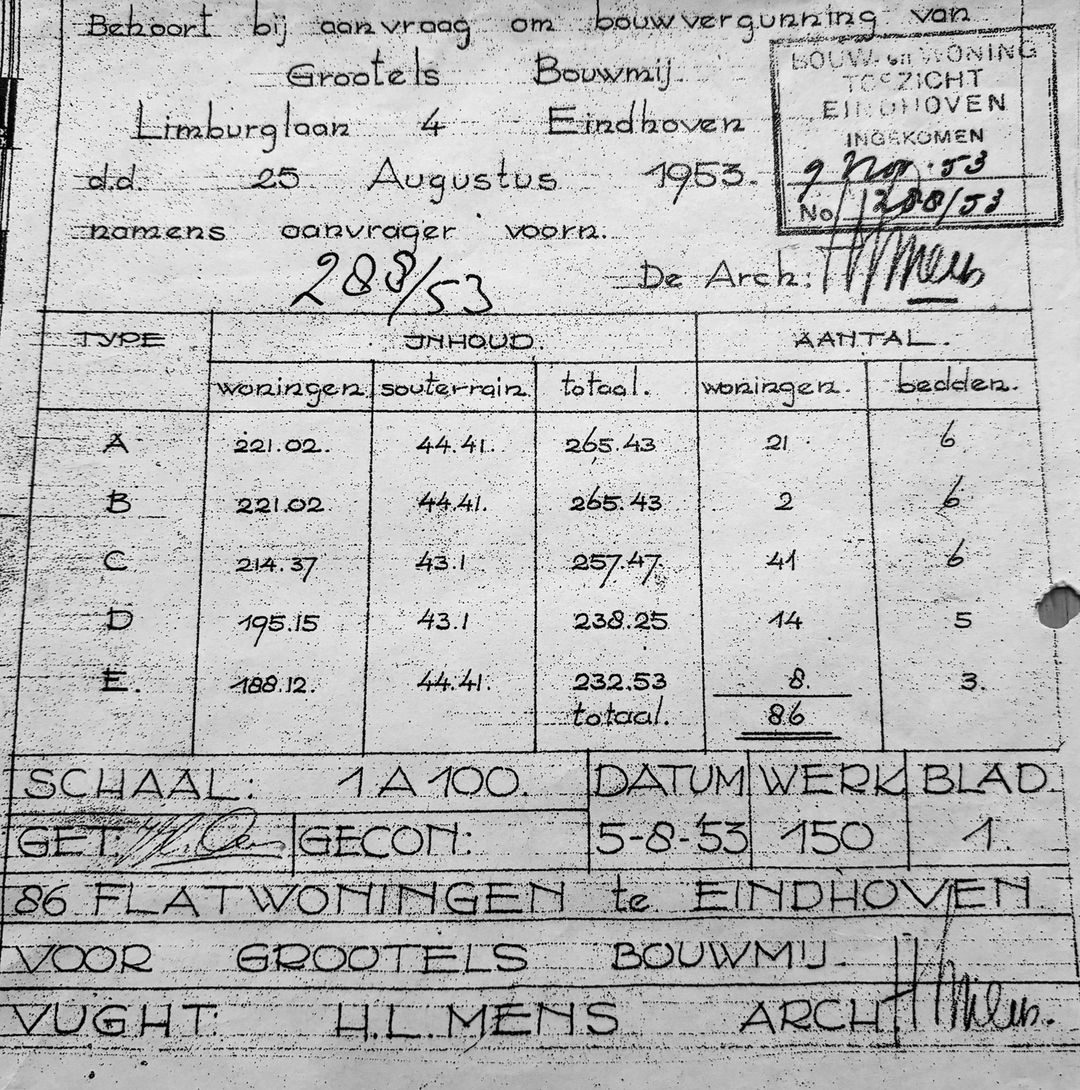 Behoort bij aanvraag om bouwvergunning van
Grootels Bouwmij.
Limburglaan 4 Eindhoven
d.d. 25 Augustus 1953.
namens aanvrager voorn.
288/53
De Arch: HLMens
BOUW- en WONING
TOEZICHT
EINDHOVEN
INGEKOMEN
9 Nov. 53
No. 1288/53
TYPE INHOUD. AANTAL.
woningen souterrain totaal. woningen. bedden.
A 221.02. 44.41. 265.43 21 6
B 221.02 44.41. 265.43 2 6
C 214.37 43.1 257.47. 41 6
D 195.15 43.1 238.25 14 5
E. 188.12. 44.41. 232.53 8. 3.
totaal. 86
SCHAAL: 1 A 100. DATUM WERK BLAD.
GET: GECON: 5-8-'53 150 1.
86 FLATWONINGEN te EINDHOVEN
VOOR GROOTELS BOUWMIJ.
VUGHT: H.L. MENS ARCH. HLMens.